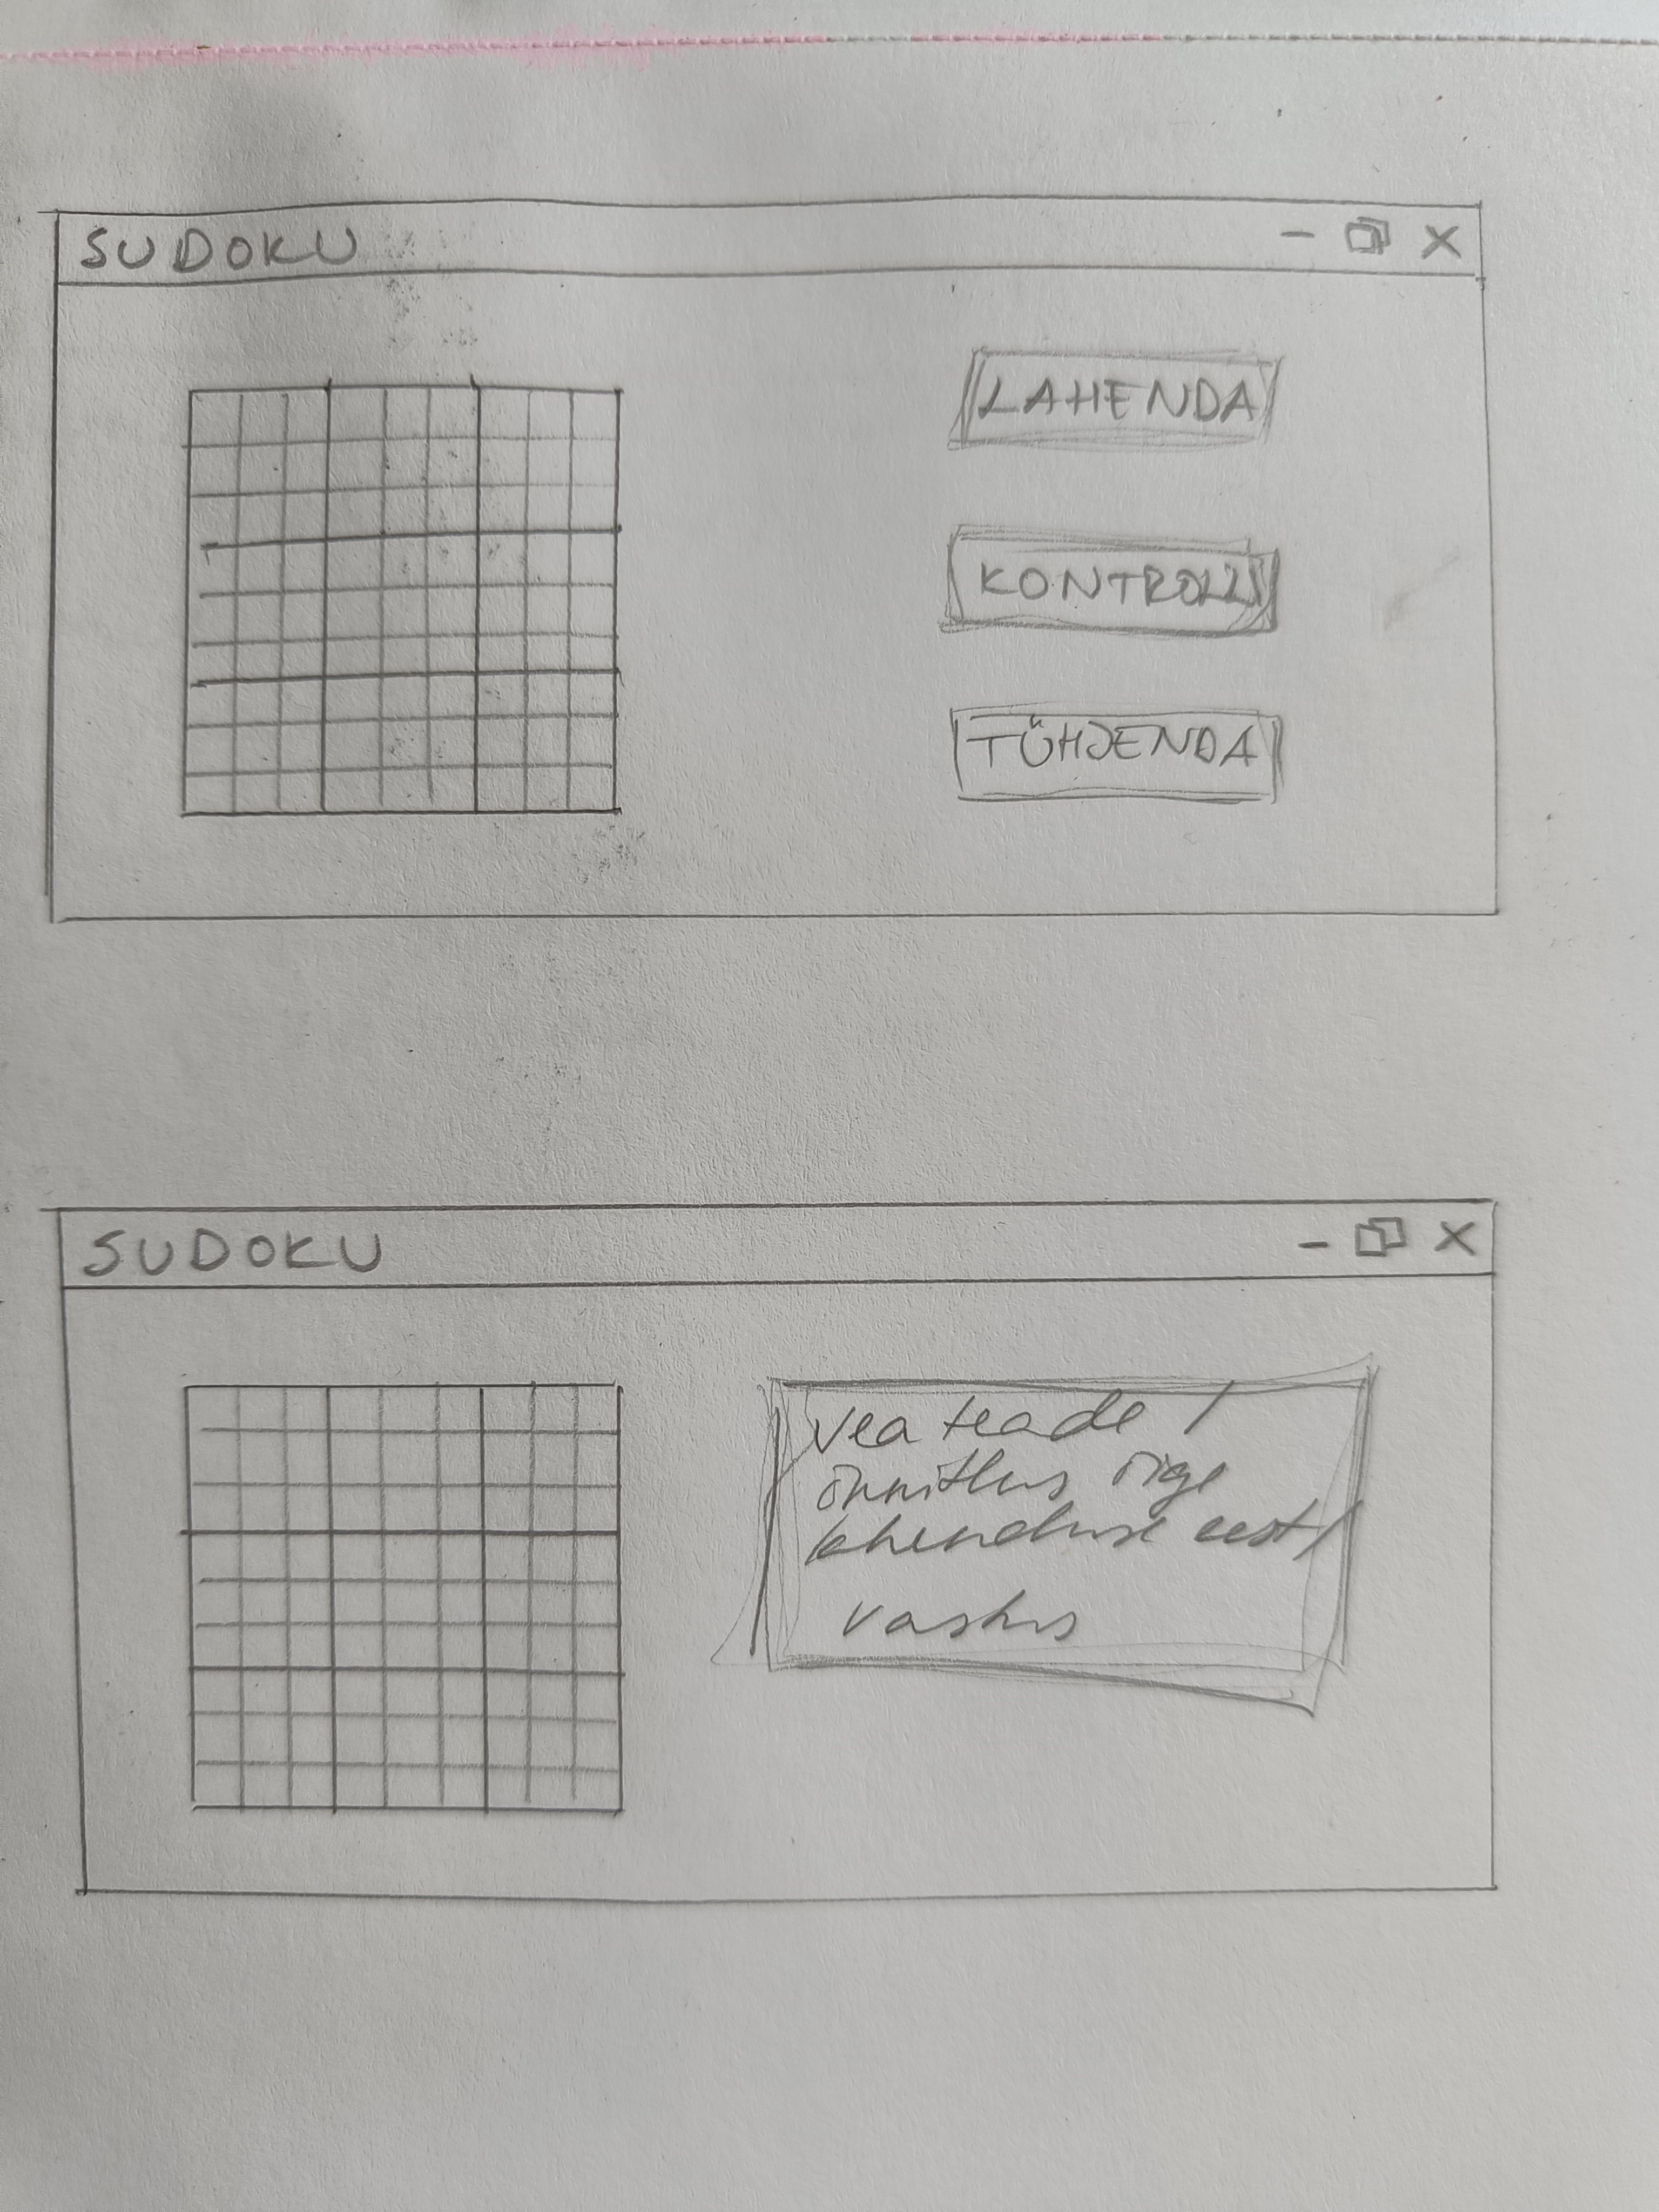 SUDOKU
LAHENDA
KONTROLLI
TÜHJENDA
SUDOKU
veateade /
õnnitlus õige
lahenduse eest /
vastus